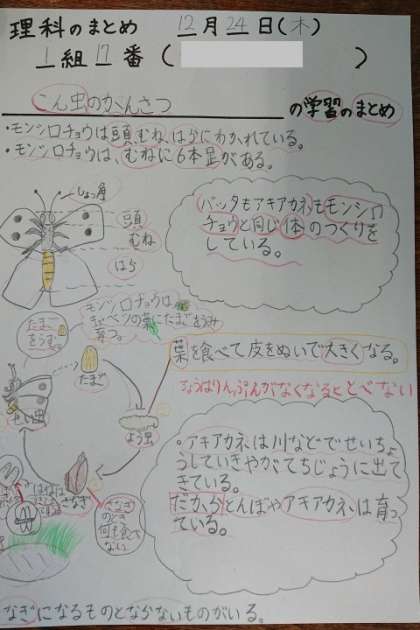 理科のまとめ 12月24日(木)
1組17番( )
こん虫のかんさつ の学習のまとめ
・モンシロチョウは頭、むね、はらにわかれている。
・モンシロチョウは、むねに6本足がある。
しょっ角
頭
むね
はら
バッタもアキアカネもモンシロ
チョウと同じ体のつくりを
している。
モンシロチョウは
キャベツの葉にたまごをうみ
育つ。
たまご
をうむ
たまご
葉を食べて皮をぬいで大きくなる。
ちょうはりんぷんがなくなるととべない
せい虫
よう虫
さなぎ
さなぎ
のとき
何も食べ
ない。
・アキアカネは川などでせいちょ
うしていきやがてちじょうに出て
きている。
だからとんぼやアキアカネは育っ
ている。
なぎになるものとならないものがいる。